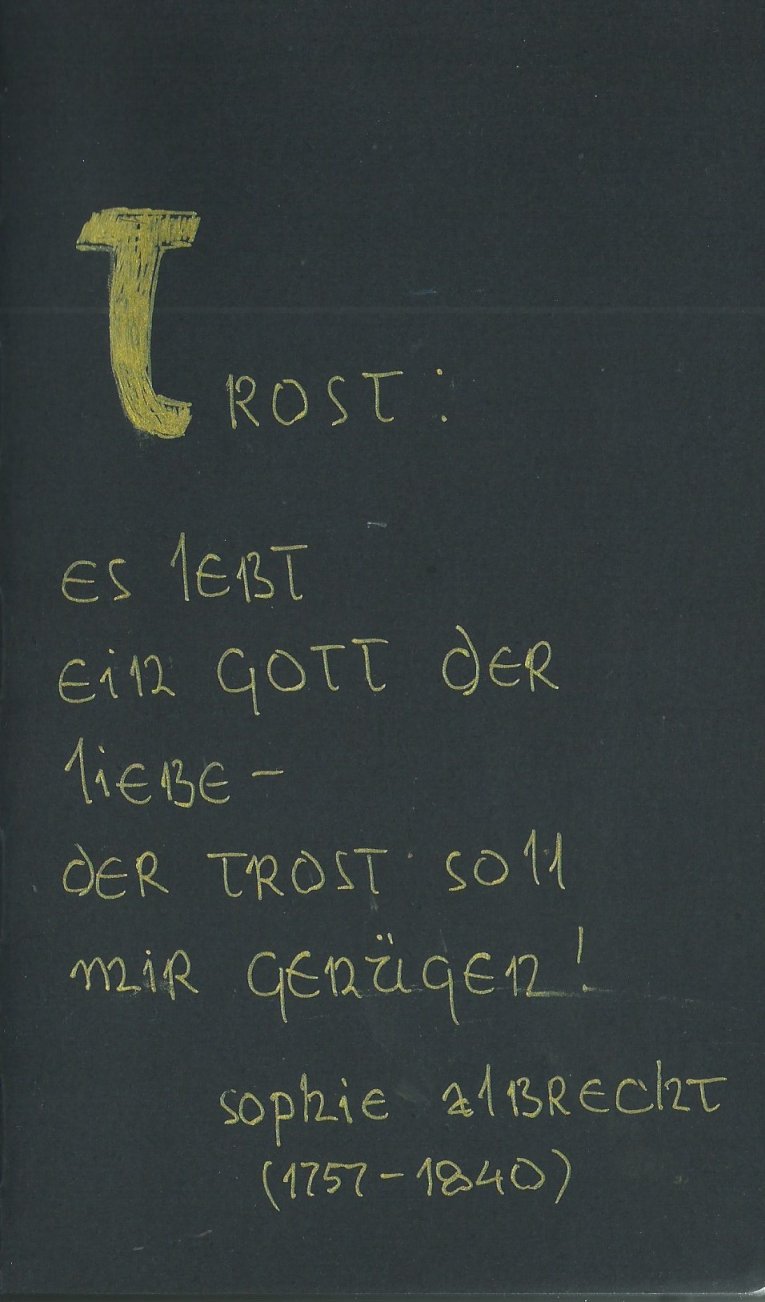 TROST:
ES lEBT
EiN GOTT dER
liEBE –
dER TROST SOll
MiR GENÜGEN!
SOphiE AlBREChT
(1757–1840)